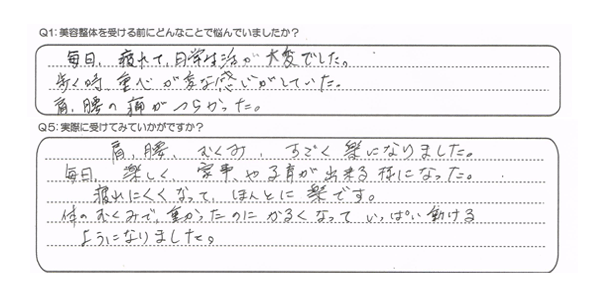 Q1：美容整体を受ける前にどんなことで悩んでいましたか？
毎日、疲れて、日常生活が大変でした。
歩く時、重心が変な感じがしていた。
肩、腰の痛がつらかった。
Q5：実際に受けてみていかがですか？
肩、腰、むくみ、すごく楽になりました。
毎日、楽しく、家事や子育が出来る様になった。
疲れにくくなって、ほんとに楽です。
体のむくみで、重かったのにかるくなっていっぱい動ける
ようになりました。